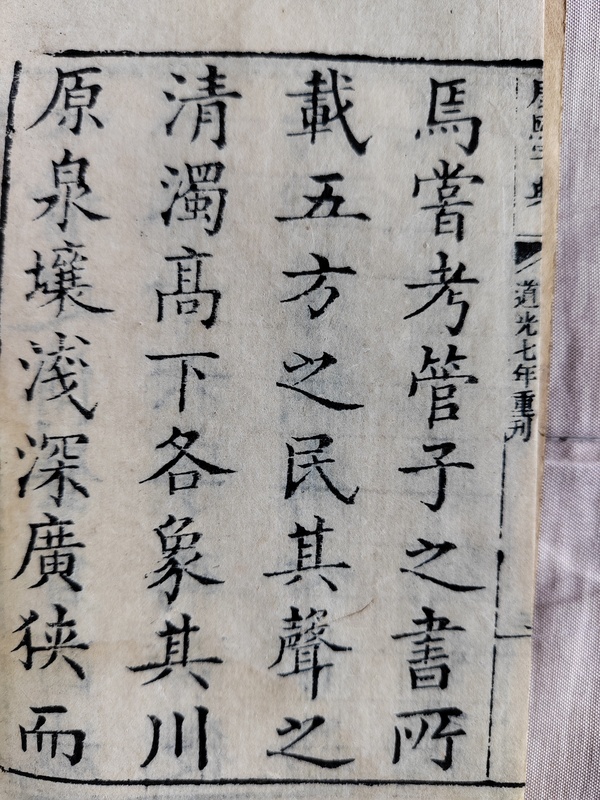 康熙字典
道光七年重刊
焉嘗考管子之書所
載五方之民其聲之
清濁髙下各象其川
原泉壤淺深廣狹而